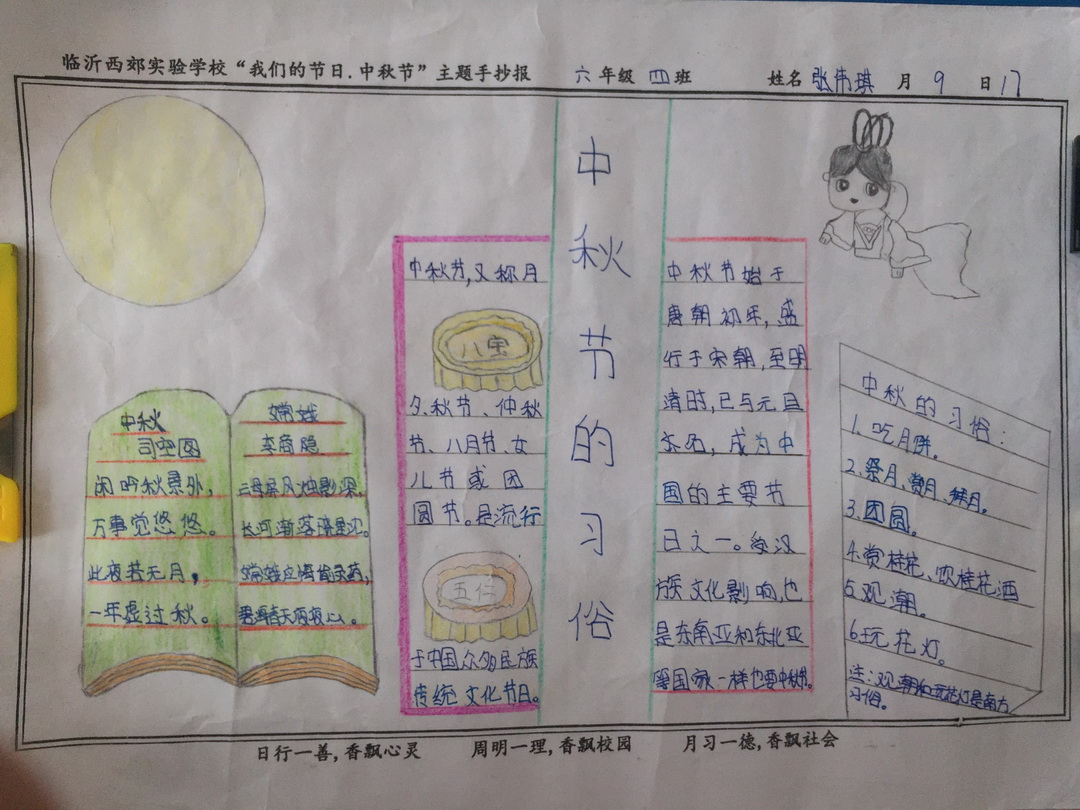 临沂西郊实验学校“我们的节日.中秋节”主题手抄报 六年级 四班 姓名 张伟琪 月 9 日 17
中秋
司空图
闲吟秋景外，
万事觉悠悠。
此夜若无月，
一年虚过秋。
嫦娥
李商隐
云母屏风烛影深，
长河渐落晓星沉。
嫦娥应悔偷灵药，
碧海青天夜夜心。
中秋节，又称月
八宝
夕、秋节、仲秋
节、八月节、女
儿节或团
圆节。是流行
五仁
于中国众多民族
传统文化节日。
中秋节的习俗
中秋节始于
唐朝初年，盛
行于宋朝，至明
清时，已与元旦
齐名，成为中
国的主要节
日之一。受汉
族文化影响，也
是东南亚和东北亚
等国家一样也要中秋节。
中秋的习俗：
1、吃月饼。
2、祭月、赏月、拜月。
3、团圆。
4、赏桂花、饮桂花酒
5、观潮。
6、玩花灯。
注：观潮和玩花灯是南方
习俗。
日行一善，香飘心灵 周明一理，香飘校园 月习一德，香飘社会